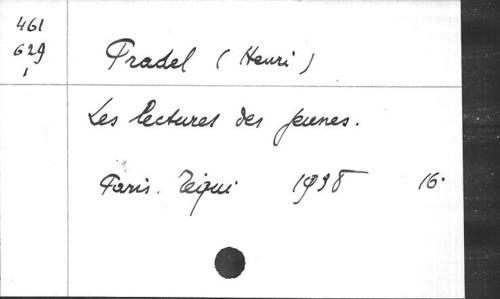 461
629
1
Pradel (Henri)
Les lectures des jeunes.
Paris. Téqui 1938 16.